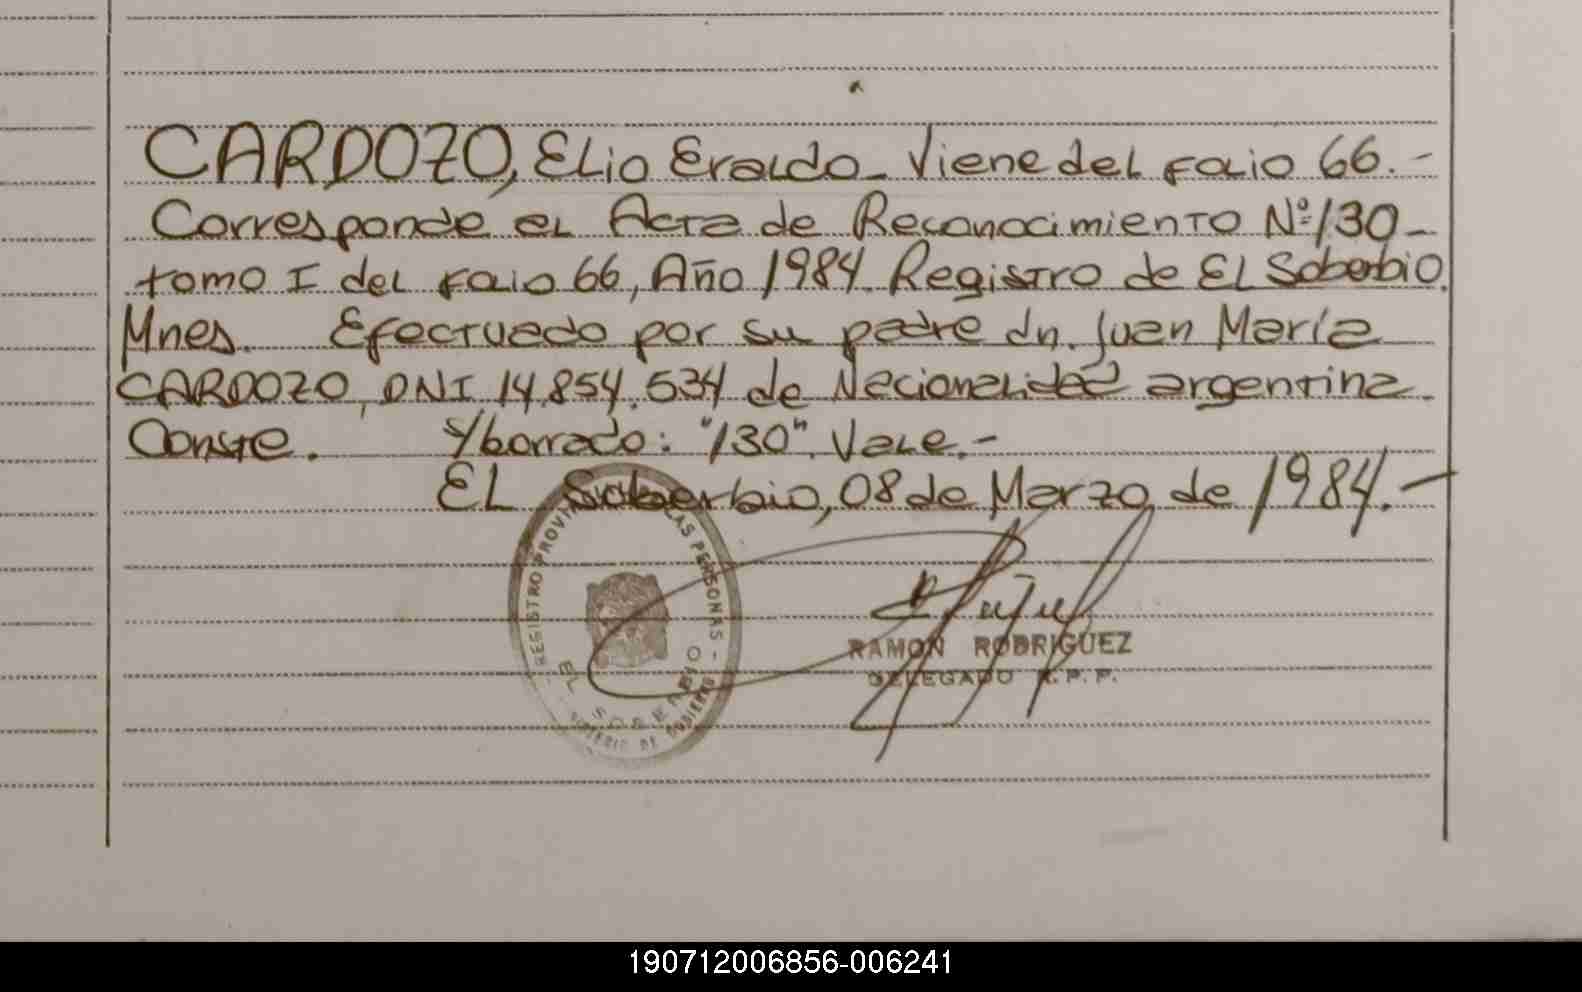 CARDOZO, Elio Eraldo_ Viene del Folio 66.-
Corresponde el Acta de Reconocimiento Nº 130-
tomo I del folio 66, Año 1984. Registro de El Soberbio.
Mnes. Efectuado por su padre dn. Juan María
CARDOZO, DNI 14.854.534 de Nacionalidad argentina.
Conste. s/borrado: "130". Vale.-
EL Soberbio, 08 de Marzo de 1984.-
REGISTRO PROVIN LAS PERSONAS -
EL SOBERBIO
MINISTERIO DE GOBIERNO
RAMON RODRIGUEZ
DELEGADO R.P.P.
190712006856-006241